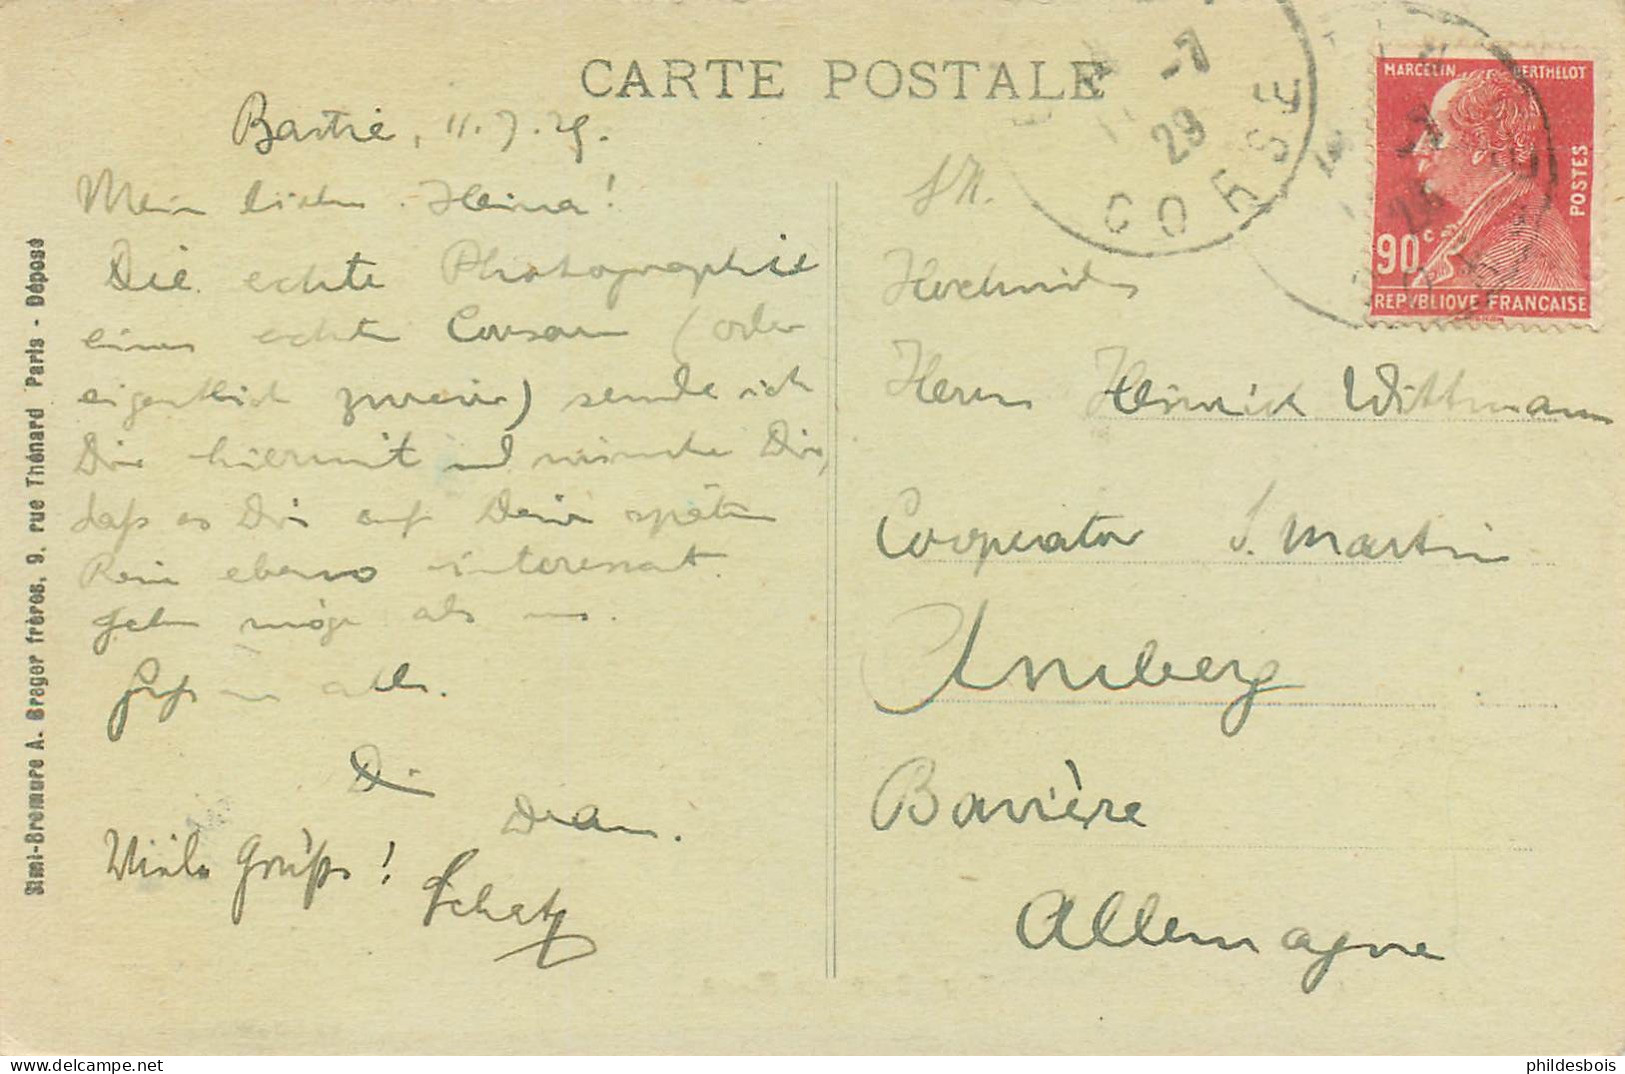 CARTE POSTALE
Bastia, 11.7.29.
Mein lieber Heina!
Die echte Photographie
eines echten Corsen (oder
eigentlich zweier) sende ich
Dir hiermit und wünsche Dir,
daß es Dir auf Deiner späten
ebenso interessant
gehen möge als uns.
alle.
Dein
Viele Grüße! Schatz
S.H.
Hochwürden
Herrn Heinrich Wittmann
Cooperator S. Martin
Amberg
Bavière
Allemagne
-7
29
CORSE
MARCELIN BERTHELOT
POSTES
90c
REPVBLIQVE FRANCAISE
Simi-Bromure A. Breger frères, 9, rue Thénard Paris - Déposé
phildesbois